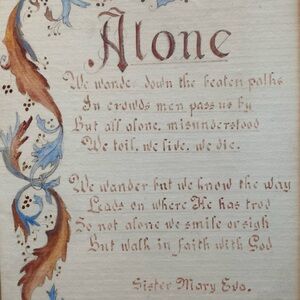 Alone
We wander down the beaten paths
In crowds men pass us by
But all alone, misunderstood
We toil, we live, we die.
We wander but we know the way
Leads on where He has trod
So not alone we smile or sigh
But walk in faith with God
Sister Mary Eva.